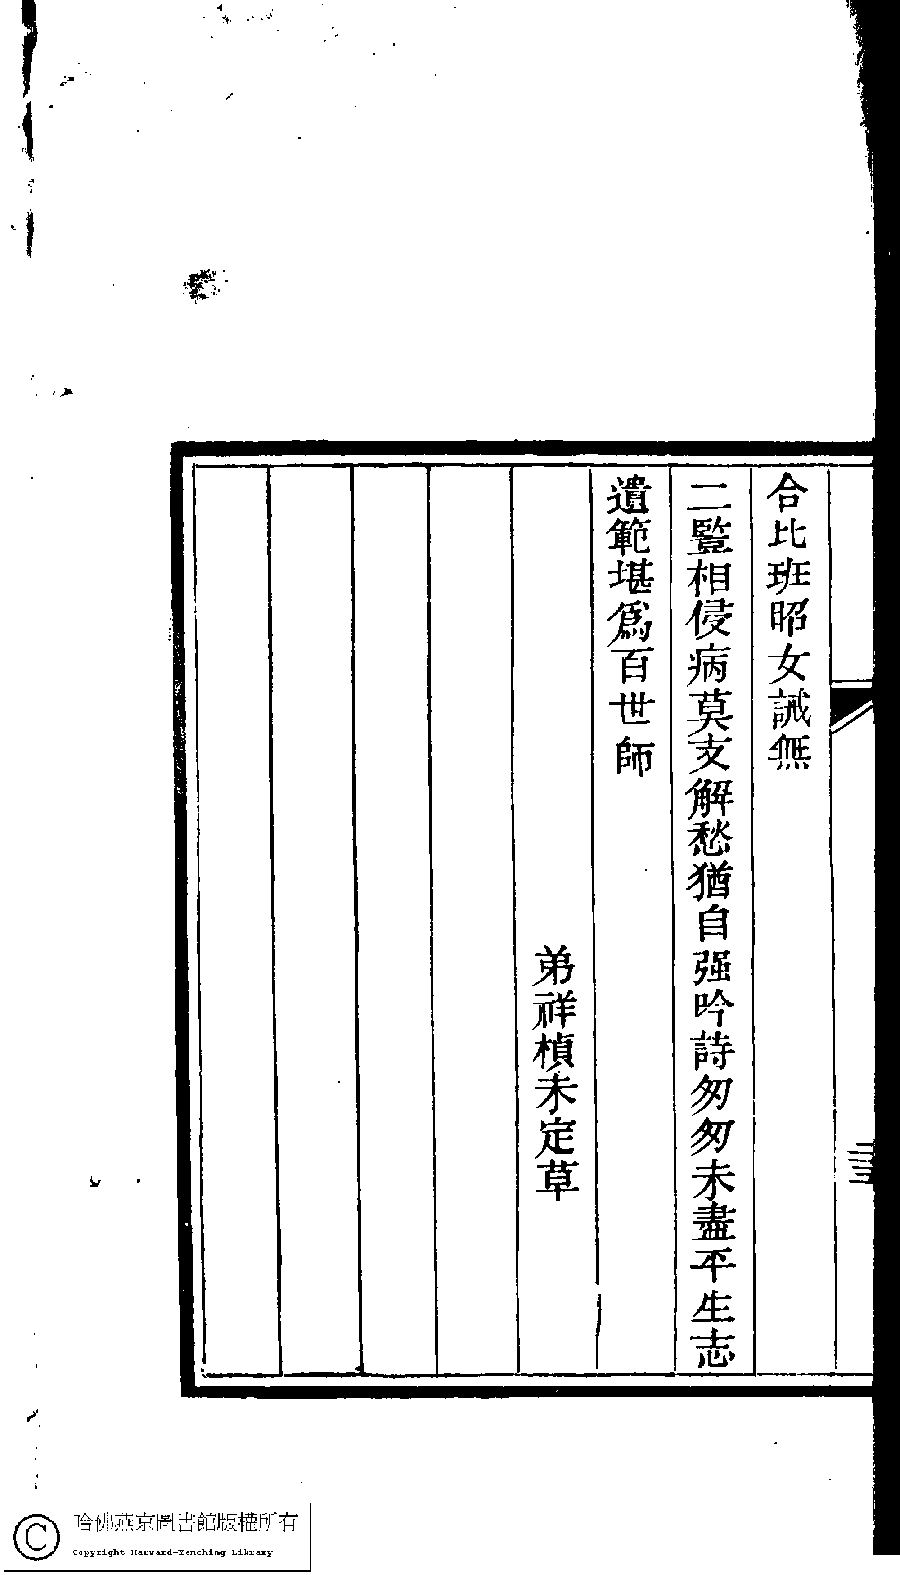 合比班昭女誡無
二豎相侵病莫支解愁猶自强吟詩匆匆未盡平生志
遺範堪爲百世師
弟祥楨未定草
三
哈佛燕京圖書館版權所有
Copyright Harvard-Yenching Library